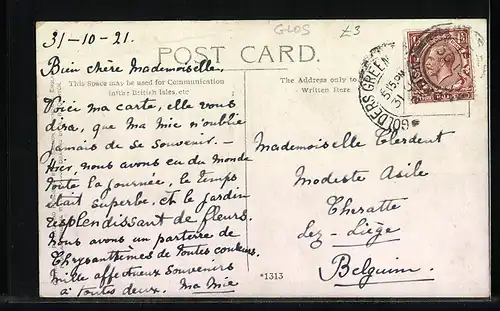 GLOS
£3
31-10-21.
POST CARD.
Bien chère Mademoiselle,
This Space may be used for Communication
in the British Isles, etc
The Address only to
Written Here.
GOLDERS GREEN
5.15 PM
Voici ma carte, elle vous
dira, que ma mie n'oublie
jamais de se souvenir. —
Hier, nous avons eu du monde
toute la journée, le temps
était superbe, et le jardin
resplendissant de fleurs.
Nous avons un parterre de
Chrysanthèmes de toutes couleurs.
Mille affectueux souvenirs
à toutes deux. Ma Mie
Mademoiselle Clerdent
Modeste Asile
Theratte
lez-Liège
Belguim.
*1313